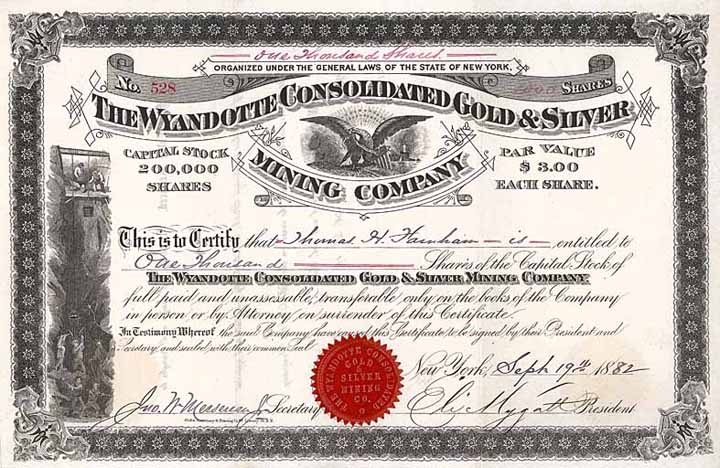 One Thousand Shares
ORGANIZED UNDER THE GENERAL LAWS OF THE STATE OF NEW YORK,
No. 528
1000 SHARES
THE WYANDOTTE CONSOLIDATED GOLD & SILVER
MINING COMPANY
CAPITAL STOCK
200,000
SHARES
PAR VALUE
$ 3.00
EACH SHARE.
This is to Certify that Thomas H. Farnham is entitled to
One Thousand Shares of the Capital Stock of
THE WYANDOTTE CONSOLIDATED GOLD & SILVER MINING COMPANY
full paid and unassessable, transferable only on the books of the Company
in person or by Attorney on surrender of this Certificate.
In Testimony Whereof the said Company have caused this Certificate to be signed by their President and
Secretary and sealed with their common Seal
New York, Sept 19th 1882
Secretary
Eli Mygatt President
THE WYANDOTTE CONSOLIDATED
GOLD
&
SILVER
MINING
CO.